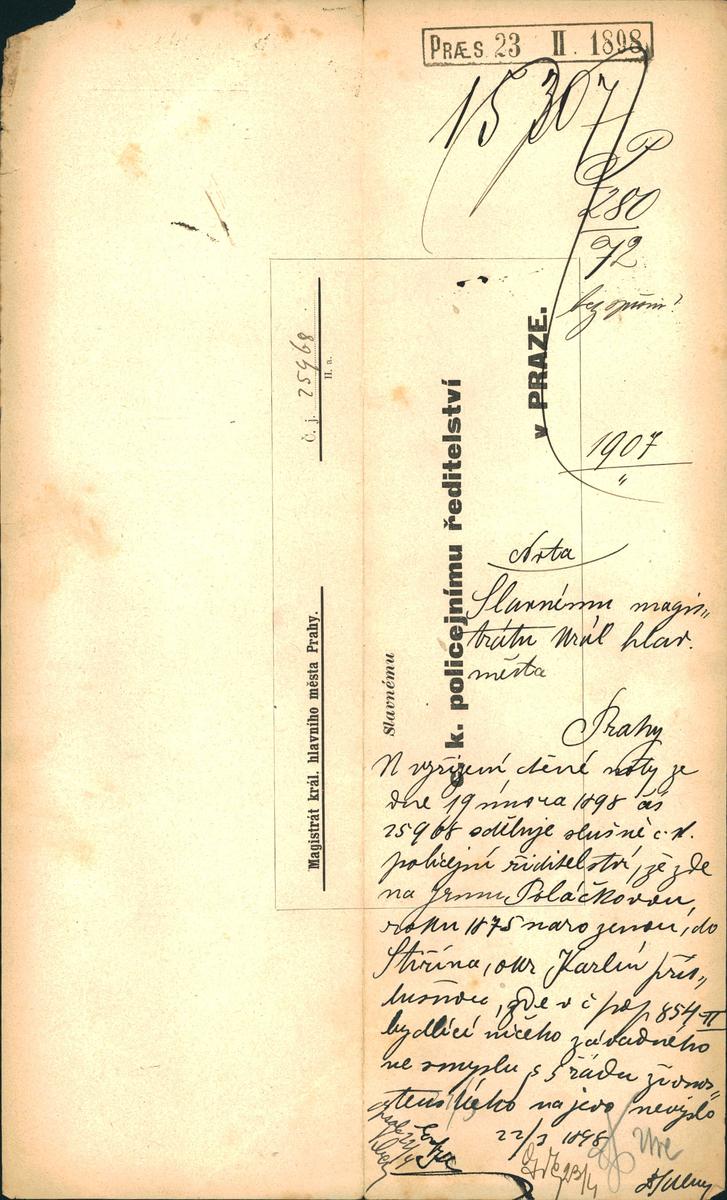 PRÆS. 23 II. 1898
15307
280
72
1907
"
Č. j. 25968
II. a.
Magistrát král. hlavního města Prahy.
Slavnému
c. k. policejnímu ředitelství
v PRAZE.
Nota
Slavnému magis„
trátu král hlav.
města
Prahy
K vyřízení ctěné noty ze
dne 19 února 1898 čís
25968 sděluje slušně c. k.
policejní ředitelství, že zde
na Poláčkovou,
roku 1875 narozenou, do
okr Karlín přís„
lušnou, zde v č pop 854-II
bydlící ničeho závadného
ve smyslu § 5 řádu živnos„
tenského na jevo nevyšlo
22/3 1898